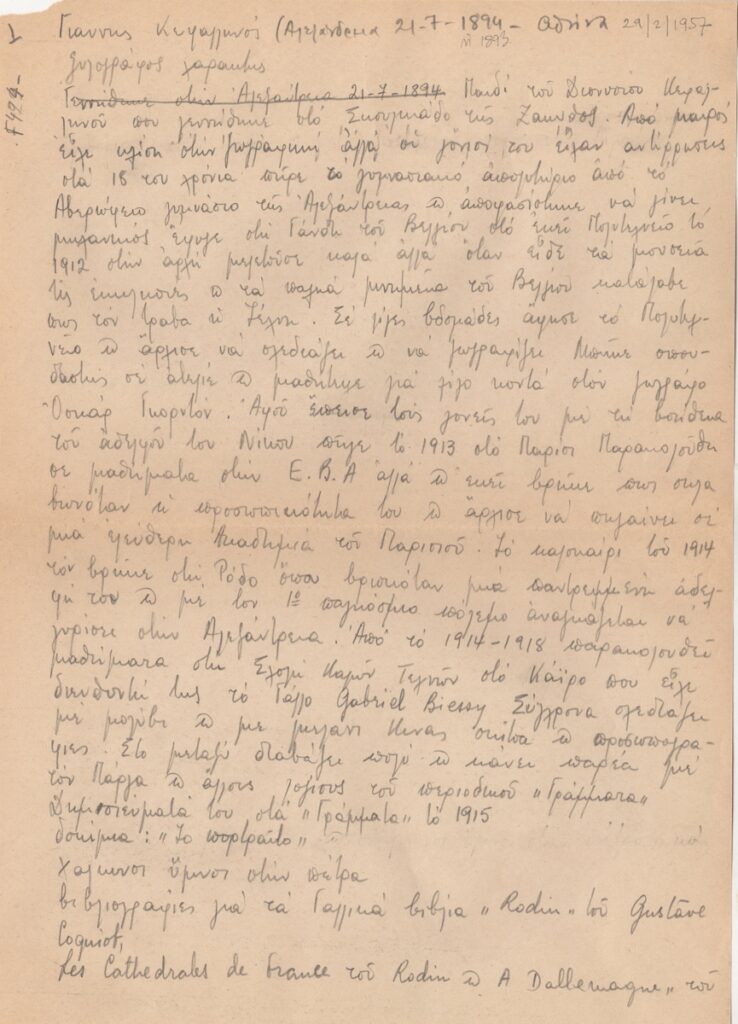 1 Γιάννης Κεφαλληνός (Αλεξάνδρεια 21-7-1894 - Αθήνα 29/2/1957
ή 1893
ξυλογράφος χαράκτης
F429-
Γεννήθηκε στην Αλεξάντρεια 21-7-1894 Παιδί τοῦ Διονυσίου Κεφαλ-
ληνοῦ που γεννήθηκε στό Σκουλικάδο τῆς Ζακυνθος. Από μικρός
εἶχε κλίση στην ζωγραφική ἀλλά οἱ γονιοί του εἶχαν αντίρρησεις
στά 18 του χρόνια πῆρε το γυμνασιακό ἀπολυτήριο ἀπό τό
Αβερώφειο γυμνάσιο τῆς Αλεξάντρειας ϖ ἀποφασίστηκε νά γίνει
μηχανικός ἔφυγε στη Γάνδη τοῦ Βελγίου στό ἐκεῖ Πολυτεχνεῖο τό
1912 στην ἀρχή μελετοῦσε καλά ἀλλά ὅταν εἶδε τά μουσεῖα
τίς ἐκκλησιές ϖ τά παλιά μνημεῖα τοῦ Βελγίου κατάλαβε
πως τόν τραβα η τέχνη. Σέ λίγες βδομάδες ἄφησε τό Πολυτεχ-
νεῖο ϖ ἄρχισε νά σχεδιάζει ϖ νά ζωγραφίζει Μπῆκε σπου-
δαστής σέ ατελιέ ϖ μαθήτεψε γιά λίγο κοντά στόν ζωγράφο
Ὀσκάρ Γκορντόν. Ἀφοῦ ἔπεισε τούς γονεῖς του με τη βοήθεια
τοῦ ἀδελφοῦ του Νίκου πῆγε τό 1913 στό Παρίσι Παρακολούθη
σε μαθήματα στην Ε.Β.Α ἀλλά ϖ ἐκεῖ βρῆκε πως σκλα
βωνόταν η προσωπικότητα του ϖ ἄρχισε νά πηγαίνει σέ
μιά ἐλεύθερη Ακαδημία τοῦ Παρισιοῦ. Τό καλοκαίρι τοῦ 1914
τόν βρῆκε στη Ρόδο ὅπου βρισκόταν μιά παντρεμμένη ἀδελ-
φή του ϖ μέ τον 1ο παγκόσμιο πόλεμο ἀναγκάζεται νά
γυρίσει στην Αλεξάντρεια. Ἀπό τό 1914-1918 παρακολουθεῖ
μαθήματα στη Σχολή Καλῶν Τεχνῶν στό Κάϊρο που εἶχε
διευθυντή της τό Γάλλο Gabriel Biessy Σύγχρονα σχεδιάζει
μέ μολύβι ϖ με μελάνι Κίνας σκίτσα ϖ προσωπογρα-
φίες. Στο μεταξύ διαβάζει πολύ ϖ κάνει παρέα μέ
τόν Πάργα ϖ ἄλλους λογίους τοῦ περιοδικοῦ „Γράμματα„
Δημοσιεύματά του στά „Γράμματα„ τό 1915
δοκίμια: „Το πορτραῖτο„ ϖ
Χάλκινοι ὕμνοι στην πέτρα
Βιβλιογραφίες γιά τά Γαλλικά βιβλία „Rodin„ τοῦ Gustave
Coquiot,
Les Cathedrales de France τοῦ Rodin ϖ A Dallemagne„ τοῦ